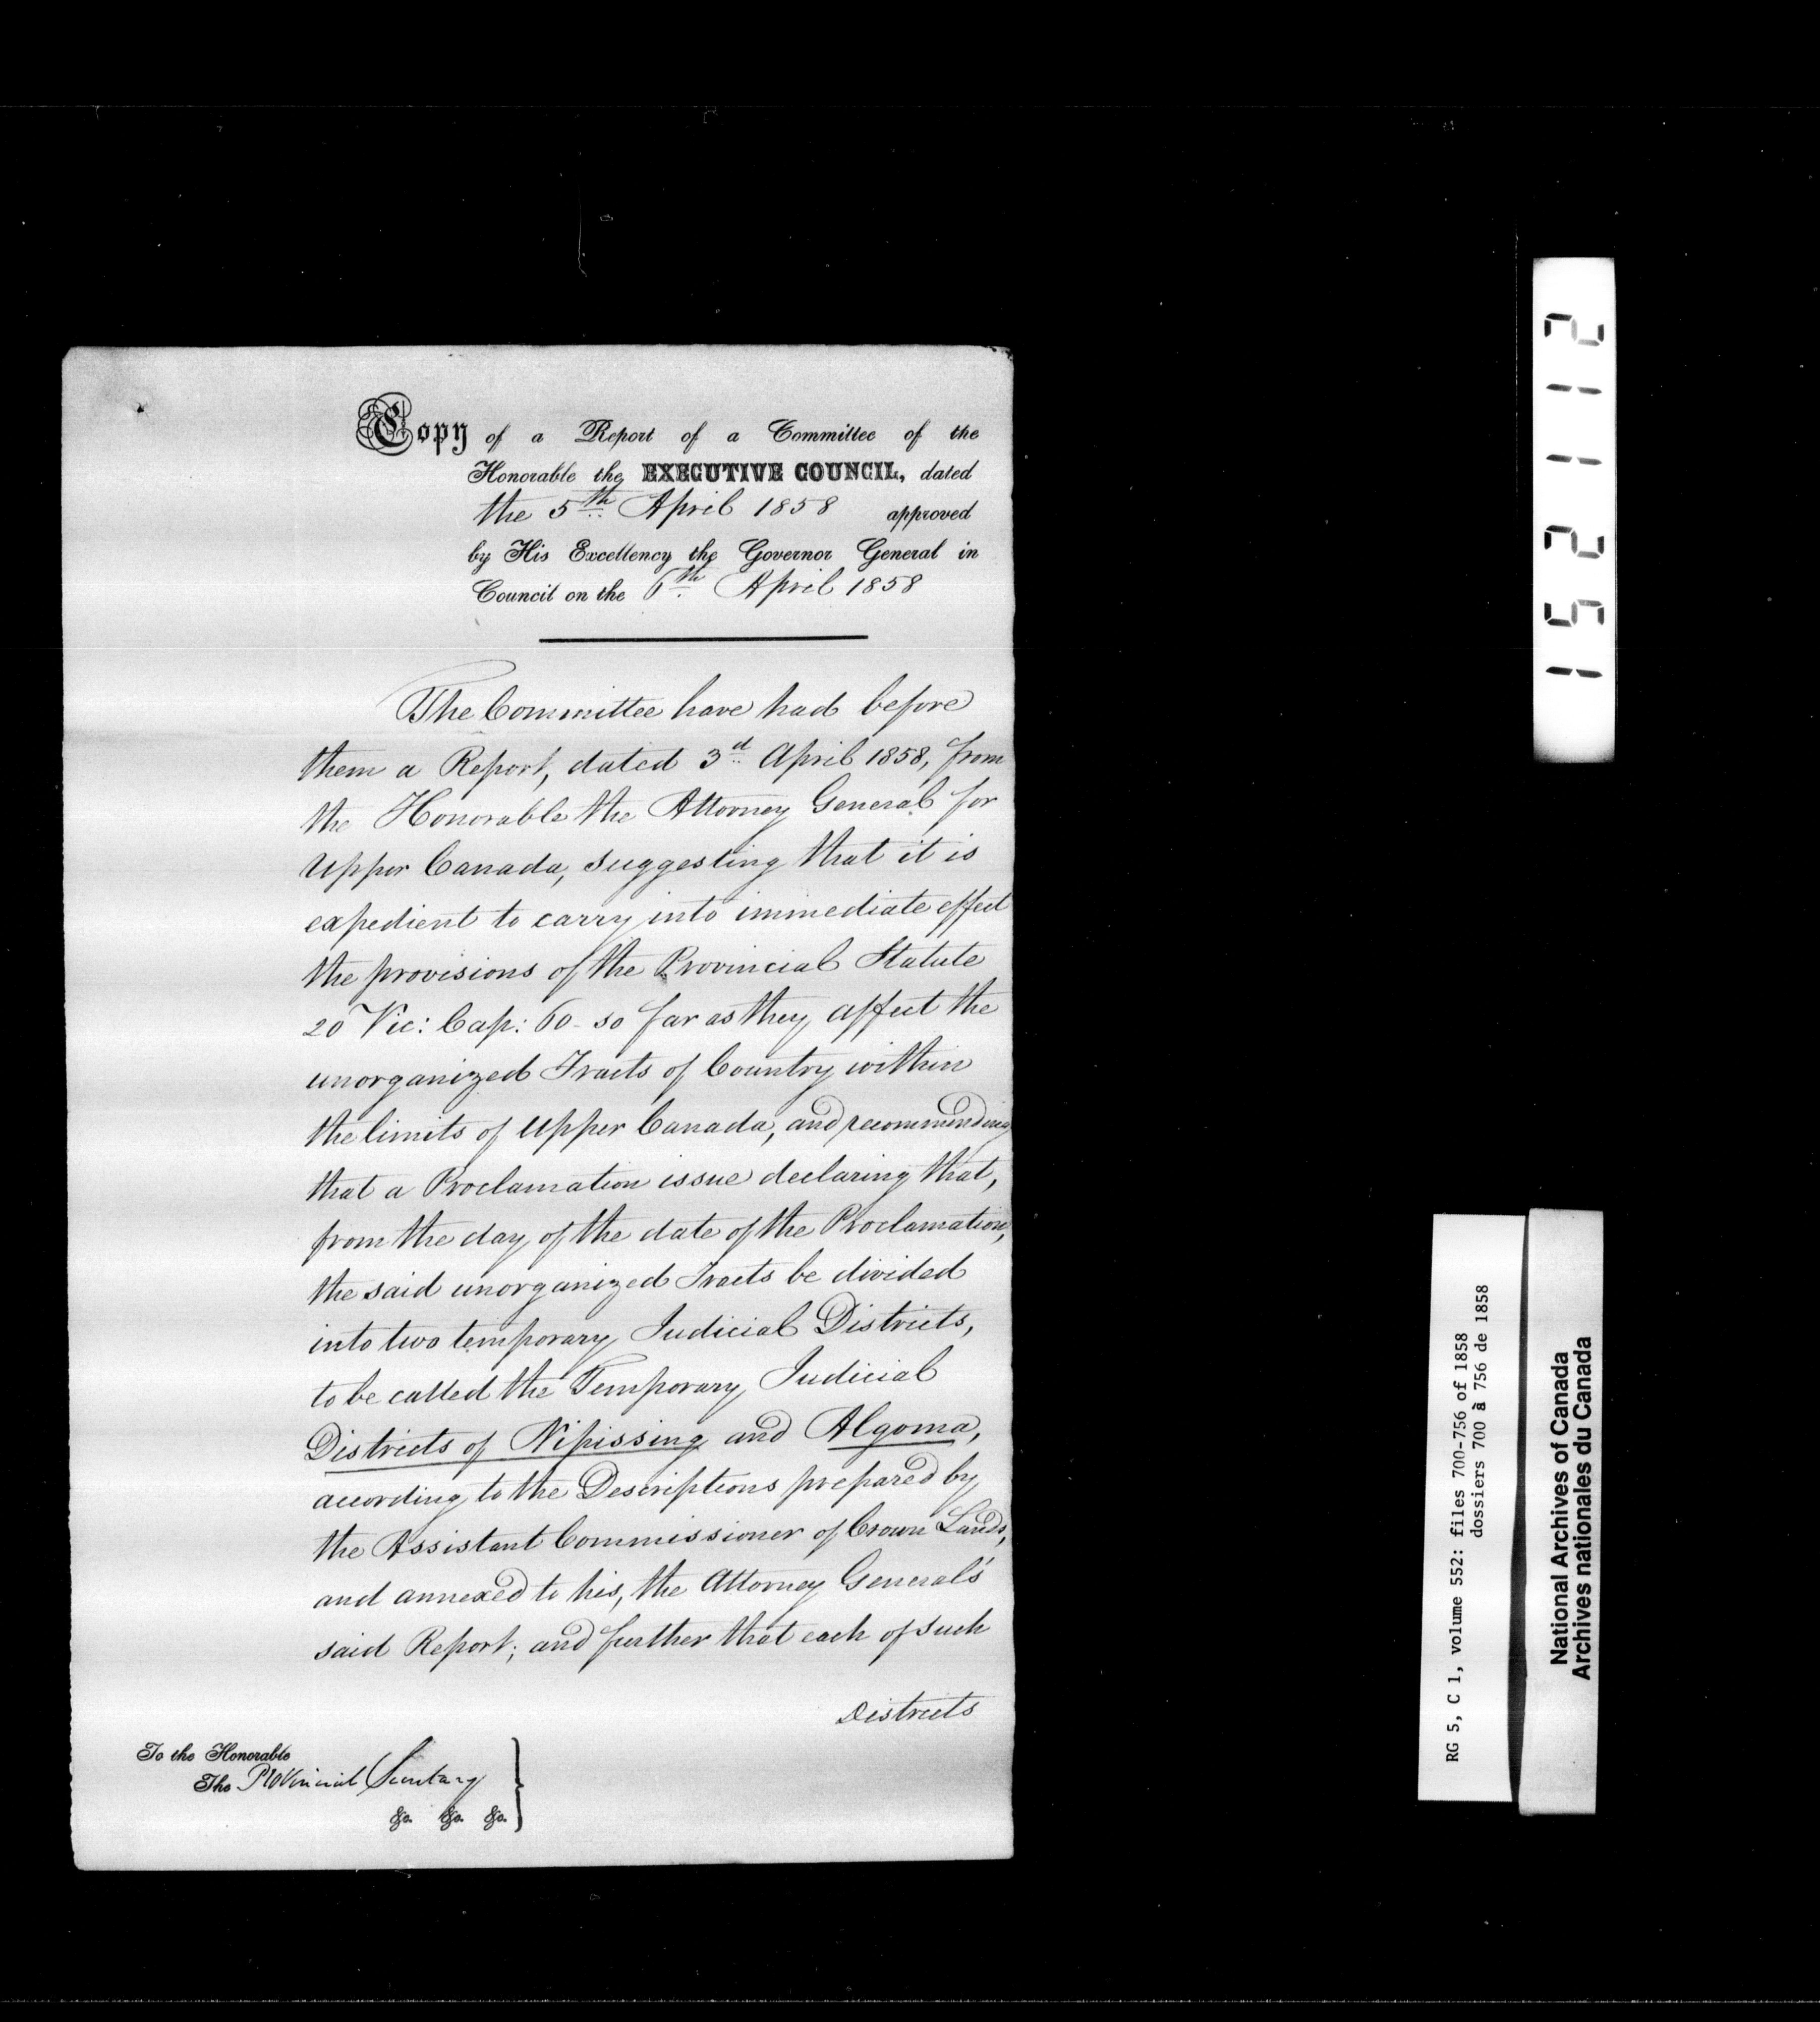 Copy of a Report of a Committee of the
Honorable the EXECUTIVE COUNCIL, dated
the 5th April 1858 approved
by His Excellency the Governor General in
Council on the 6th April 1858
The Committee have had before
them a Report, dated 3d April 1858, from
the Honorable the Attorney General for
Upper Canada, suggesting that it is
expedient to carry into immediate effect
the provisions of the Provincial Statute
20 Vic: Cap: 60 - so far as they affect the
unorganized Tracts of Country within
the limits of Upper Canada, and recommending
that a Proclamation issue declaring that,
from the day of the date of the Proclamation,
the said unorganized Tracts be divided
into two temporary Judicial Districts,
to be called the Temporary Judicial
Districts of Nipissing and Algoma,
according to the Descriptions prepared by
the Assistant Commissioner of Crown Lands,
and annexed to his, the Attorney General's
said Report; and further that each of such
Districts
To the Honorable
The Provincial Secretary
&c. &c. &c.
152112
RG 5, C 1, volume 552: files 700-756 of 1858
dossiers 700 à 756 de 1858
National Archives of Canada
Archives nationales du Canada